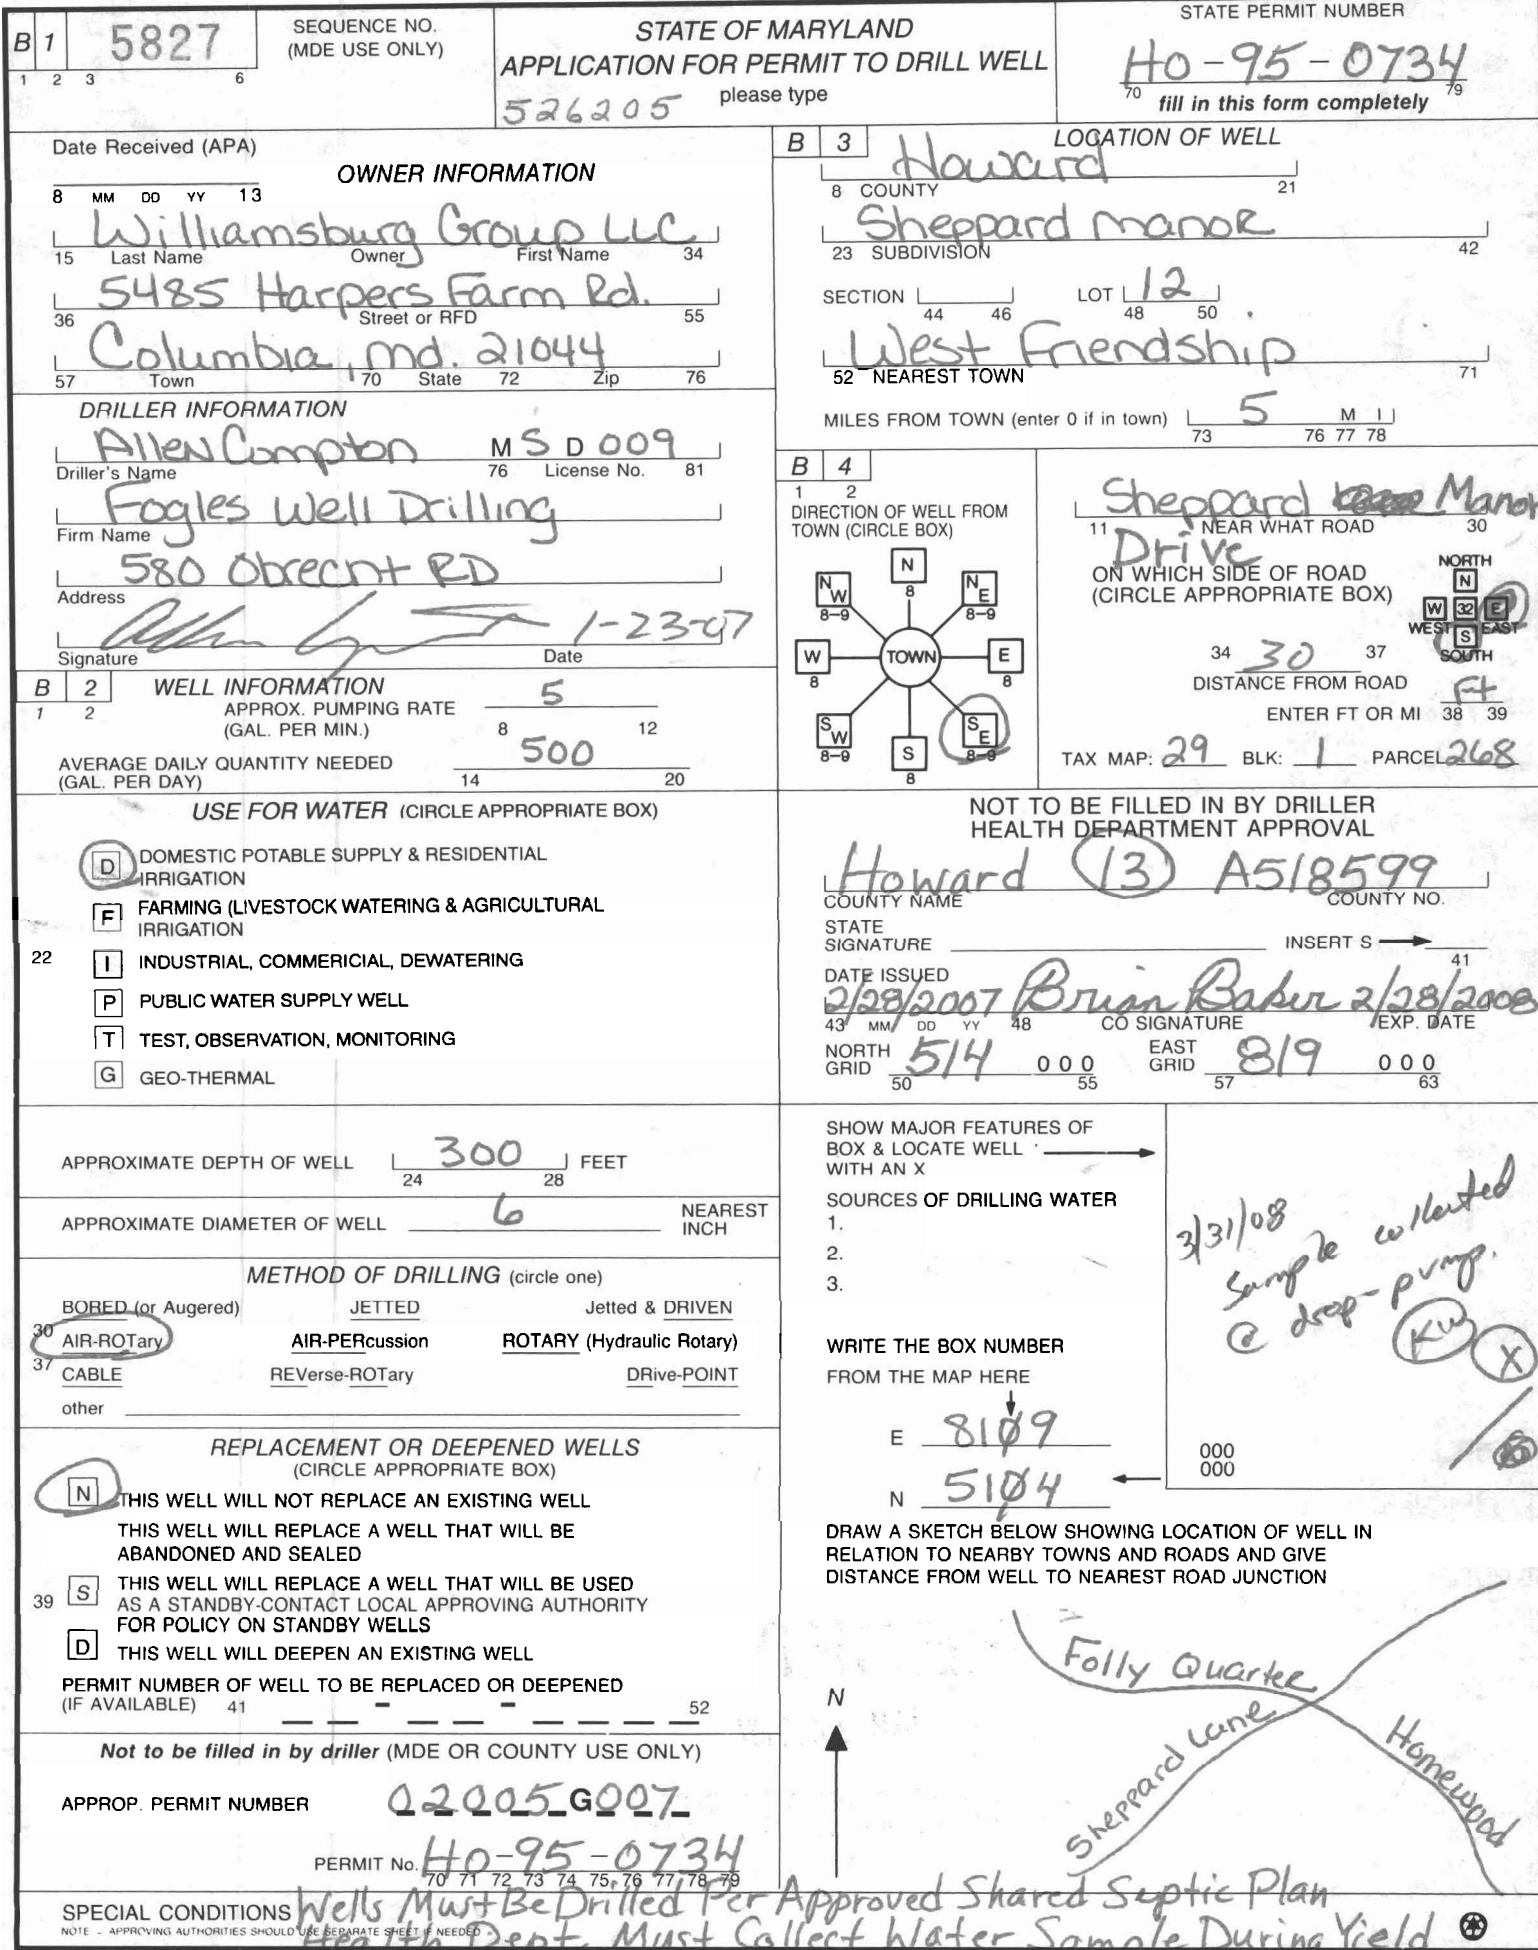 B 1 5827
1 2 3 6
SEQUENCE NO.
(MDE USE ONLY)
STATE OF MARYLAND
APPLICATION FOR PERMIT TO DRILL WELL
please type
526205
STATE PERMIT NUMBER
HO-95-0734
70 79
fill in this form completely
Date Received (APA)
8 MM DD YY 13
OWNER INFORMATION
Williamsburg Group LLC
15 Last Name Owner First Name 34
5485 Harpers Farm Rd.
36 Street or RFD 55
Columbia, md. 21044
57 Town 70 State 72 Zip 76
DRILLER INFORMATION
Allen Compton M S D 009
Driller's Name 76 License No. 81
Fogles Well Drilling
Firm Name
580 Obrecht RD
Address
1-23-07
Signature Date
B 2 WELL INFORMATION
1 2
APPROX. PUMPING RATE 5
(GAL. PER MIN.) 8 12
AVERAGE DAILY QUANTITY NEEDED 500
(GAL. PER DAY) 14 20
USE FOR WATER (CIRCLE APPROPRIATE BOX)
D DOMESTIC POTABLE SUPPLY & RESIDENTIAL
IRRIGATION
F FARMING (LIVESTOCK WATERING & AGRICULTURAL
IRRIGATION
22 I INDUSTRIAL, COMMERICIAL, DEWATERING
P PUBLIC WATER SUPPLY WELL
T TEST, OBSERVATION, MONITORING
G GEO-THERMAL
APPROXIMATE DEPTH OF WELL 300 FEET
24 28
APPROXIMATE DIAMETER OF WELL 6 NEAREST
INCH
METHOD OF DRILLING (circle one)
BORED (or Augered) JETTED Jetted & DRIVEN
30 AIR-ROTary AIR-PERcussion ROTARY (Hydraulic Rotary)
37 CABLE REVerse-ROTary DRive-POINT
other
REPLACEMENT OR DEEPENED WELLS
(CIRCLE APPROPRIATE BOX)
N THIS WELL WILL NOT REPLACE AN EXISTING WELL
THIS WELL WILL REPLACE A WELL THAT WILL BE
ABANDONED AND SEALED
39 S THIS WELL WILL REPLACE A WELL THAT WILL BE USED
AS A STANDBY-CONTACT LOCAL APPROVING AUTHORITY
FOR POLICY ON STANDBY WELLS
D THIS WELL WILL DEEPEN AN EXISTING WELL
PERMIT NUMBER OF WELL TO BE REPLACED OR DEEPENED
(IF AVAILABLE) 41 - - 52
Not to be filled in by driller (MDE OR COUNTY USE ONLY)
APPROP. PERMIT NUMBER 02005G007
PERMIT No. HO-95-0734
70 71 72 73 74 75 76 77 78 79
B 3 LOCATION OF WELL
Howard
8 COUNTY 21
Sheppard Manor
23 SUBDIVISION 42
SECTION LOT 12
44 46 48 50
West Friendship
52 NEAREST TOWN 71
MILES FROM TOWN (enter 0 if in town) 5 M I
73 76 77 78
B 4
1 2
DIRECTION OF WELL FROM
TOWN (CIRCLE BOX)
N
8
NW
8-9
NE
8-9
W
8
TOWN
E
8
SW
8-9
S
8
SE
8-9
Sheppard Manor
11 NEAR WHAT ROAD 30
Drive
ON WHICH SIDE OF ROAD
(CIRCLE APPROPRIATE BOX)
NORTH
N
W 32 E
WEST EAST
S
SOUTH
34 30 37
DISTANCE FROM ROAD
Ft
ENTER FT OR MI 38 39
TAX MAP: 29 BLK: 1 PARCEL 268
NOT TO BE FILLED IN BY DRILLER
HEALTH DEPARTMENT APPROVAL
Howard 13 A518599
COUNTY NAME COUNTY NO.
STATE
SIGNATURE INSERT S
41
DATE ISSUED
2/28/2007 Brian Baker 2/28/2008
43 MM DD YY 48 CO SIGNATURE EXP. DATE
NORTH
GRID 514 0 0 0
50 55
EAST
GRID 819 0 0 0
57 63
SHOW MAJOR FEATURES OF
BOX & LOCATE WELL
WITH AN X
SOURCES OF DRILLING WATER
1.
2.
3.
3/31/08
Sample collected
@ drop-pump.
KW
X
WRITE THE BOX NUMBER
FROM THE MAP HERE
E 8109
N 5104
000
000
DRAW A SKETCH BELOW SHOWING LOCATION OF WELL IN
RELATION TO NEARBY TOWNS AND ROADS AND GIVE
DISTANCE FROM WELL TO NEAREST ROAD JUNCTION
N
Folly Quarter
Sheppard Lane
Homewood
SPECIAL CONDITIONS Wells Must Be Drilled Per Approved Shared Septic Plan
NOTE - APPROVING AUTHORITIES SHOULD USE SEPARATE SHEET IF NEEDED
Health Dept. Must Collect Water Sample During Yield